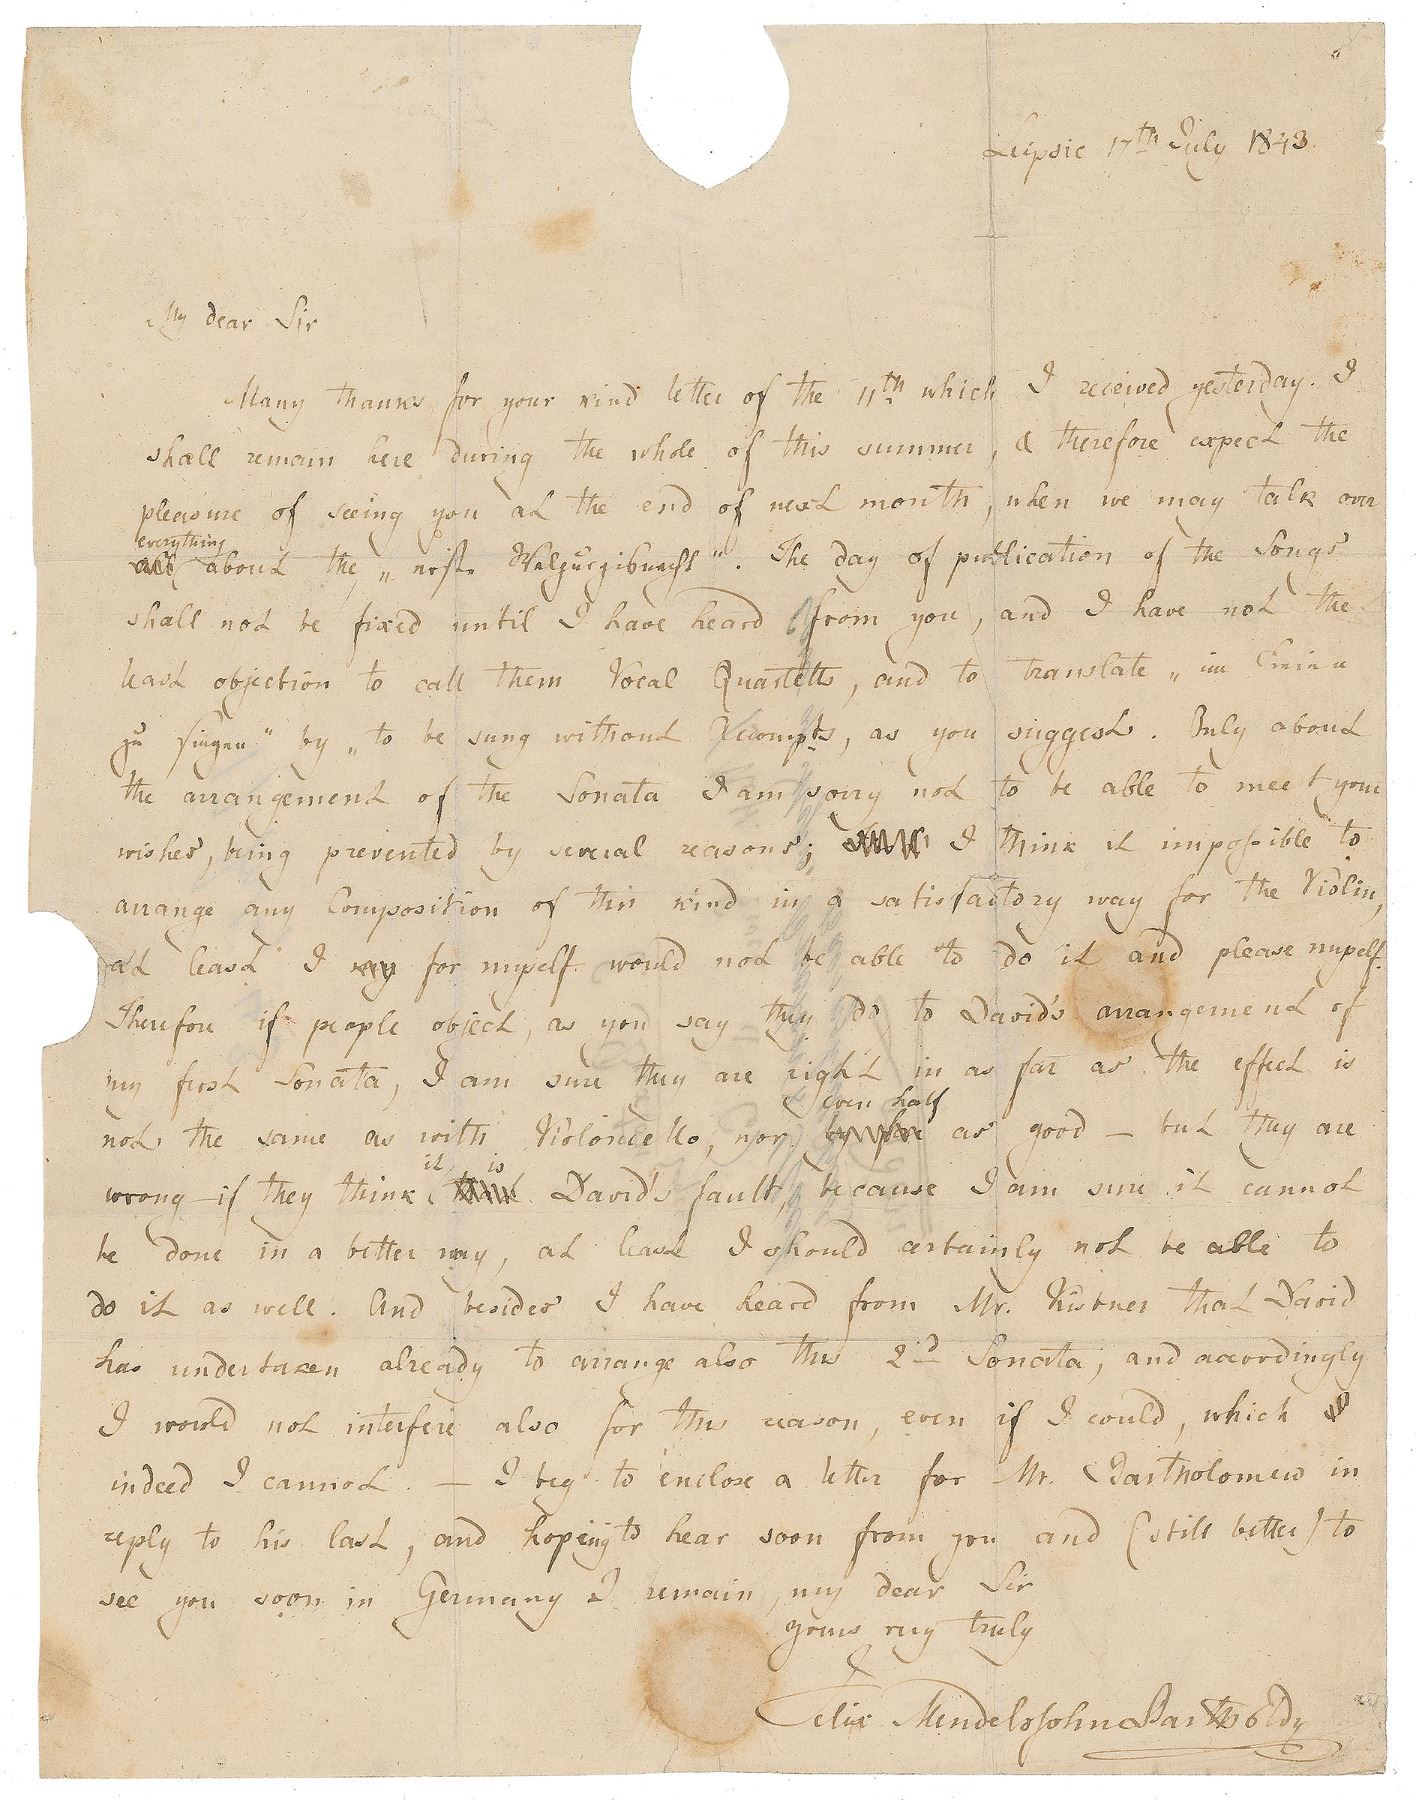 Leipsic 17th July 1843.
My dear Sir
Many thanks for your kind letter of the 11th which I received yesterday. I
shall remain here during the whole of this summer, & therefore expect the
pleasure of seeing you at the end of next month, when we may talk over
everything
all about the „erste Walpurgisnacht“. The day of publication of the Songs
shall not be fixed until I have heard from you, and I have not the
least objection to call them Vocal Quartetts, and to translate „im Freien
zu singen“ by „to be sung without Accompts, as you suggest. Only about
the arrangement of the Sonata I am sorry not to be able to meet your
wishes, being prevented by several reasons; I think it impossible to
arrange any Composition of this kind in a satisfactory way for the Violin,
at least I for myself would not be able to do it and please myself.
Therefore if people object, as you say they do to David's arrangement of
my first Sonata, I am sure they are right in as far as the effect is
even half
not the same as with Violoncello, nor by far as good — but they are
it is
wrong if they think David's fault, because I am sure it cannot
be done in a better way, at least I should certainly not be able to
do it as well. And besides I have heard from Mr. Kistner that David
has undertaken already to arrange also this 2d Sonata, and accordingly
I would not interfere also for this reason, even if I could, which I
indeed I cannot. — I beg to enclose a letter for Mr. Bartholomew in
reply to his last, and hoping to hear soon from you and (still better) to
see you soon in Germany I remain, my dear Sir
yours very truly
Felix Mendelssohn Bartholdy